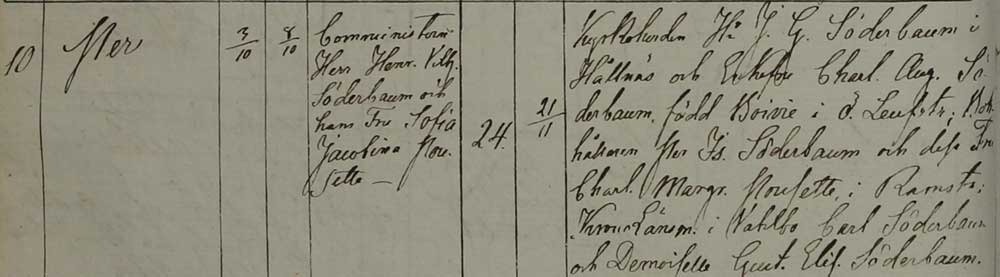 10 Per 3/10 8/10 Comministern
Herr Henr. Vilh.
Söderbaum och
hans Fru Sofia
Jacobina Nou-
sette —
24.
21/11
Kyrkoherden Hr J. G. Söderbaum i
Hållnäs och Enkefru Charl. Aug. Sö-
derbaum, född Boivie i Ö. Leufsta; Bok-
hållaren Per Is. Söderbaum och dess Fru
Charl. Margr. Nousette i Ramsta;
Krono Länsm. i Vahlbo Carl Söderbaum
och Demoiselle Gust. Elis. Söderbaum.